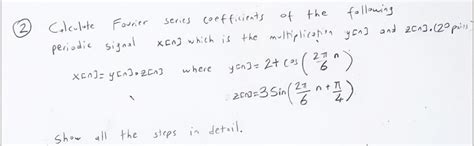 ② Calculate Fourier series coefficients of the following
periodic signal x[n] which is the multiplication y[n] and z[n]. (20 points)
x[n] = y[n] • z[n] where y[n] = 2 + cos(2π/6 n)
z[n] = 3 sin(2π/6 n + π/4)
Show all the steps in detail.